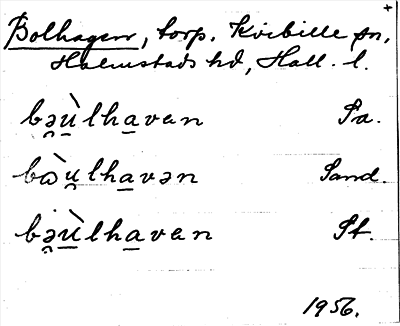 Bolhagen, torp. Kvibille sn,
Halmstads hd, Hall. l.
bə̯ù̱lha̱ven Sa.
bòu̱lha̱vən Sand.
bə̯ù̱lha̱ven St.
1956.